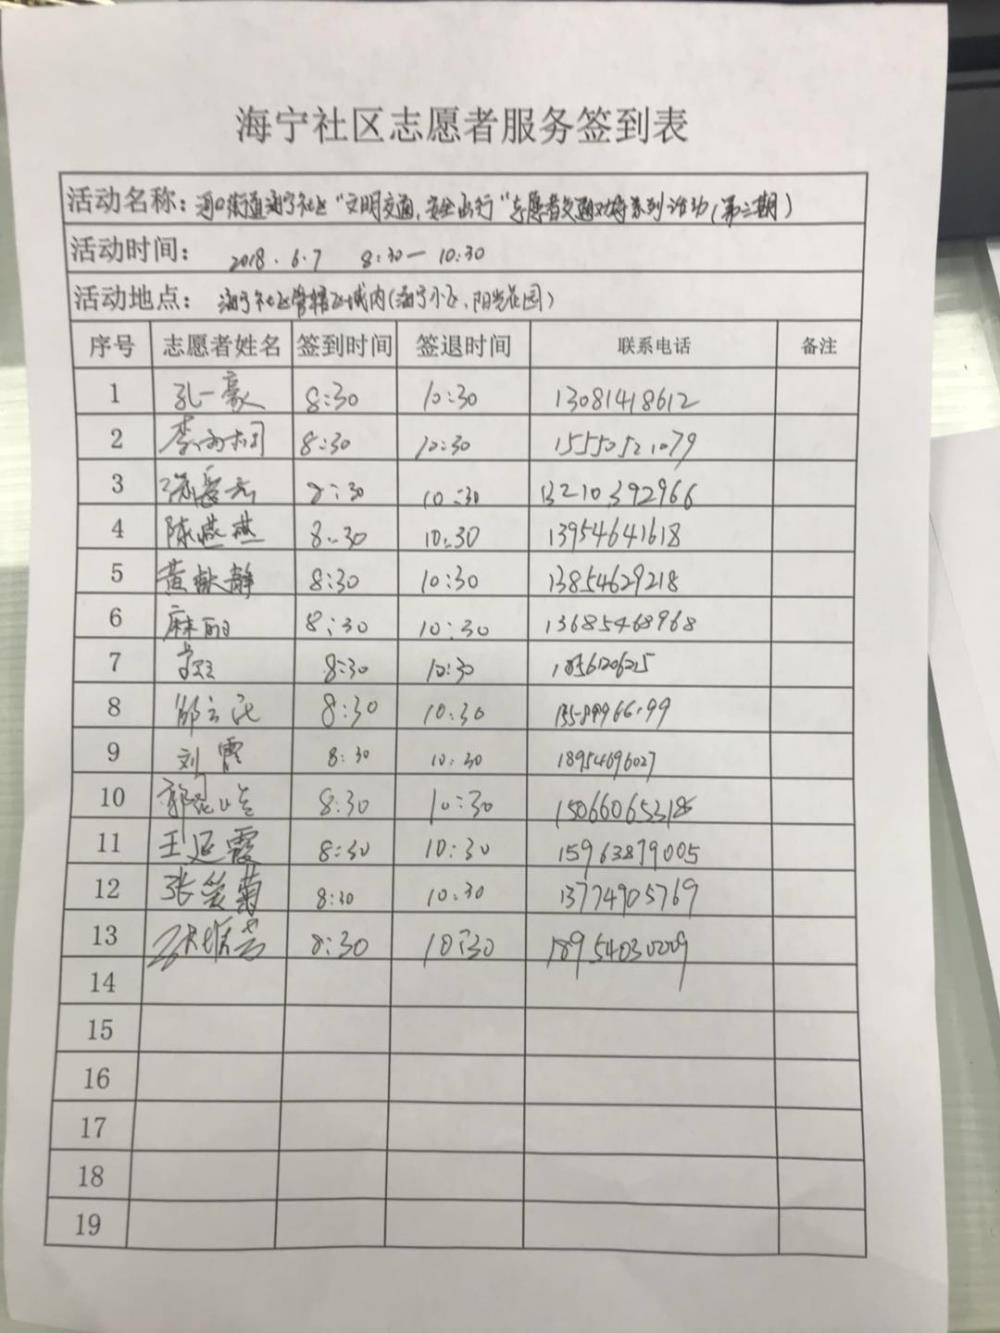 海宁社区志愿者服务签到表
活动名称：河口街道海宁社区“文明交通，安全出行”志愿者交通劝导系列活动（第三期）
活动时间： 2018.6.7 8:30—10:30
活动地点： 海宁社区管辖区域内（海宁小区、阳光花园）
序号 志愿者姓名 签到时间 签退时间 联系电话 备注
1 孔一豪 8:30 10:30 13081418612
2 8:30 10:30 15550521079
3 8:30 10:30 13210392966
4 陈燕燕 8:30 10:30 13954641618
5 黄献静 8:30 10:30 13854629218
6 麻丽 8:30 10:30 13685468968
7 8:30 10:30
8 8:30 10:30
9 刘霄 8:30 10:30 18954696027
10 8:30 10:30 15066065318
11 王延霞 8:30 10:30 15963879005
12 张爱菊 8:30 10:30 13774905769
13 8:30 10:30
14
15
16
17
18
19